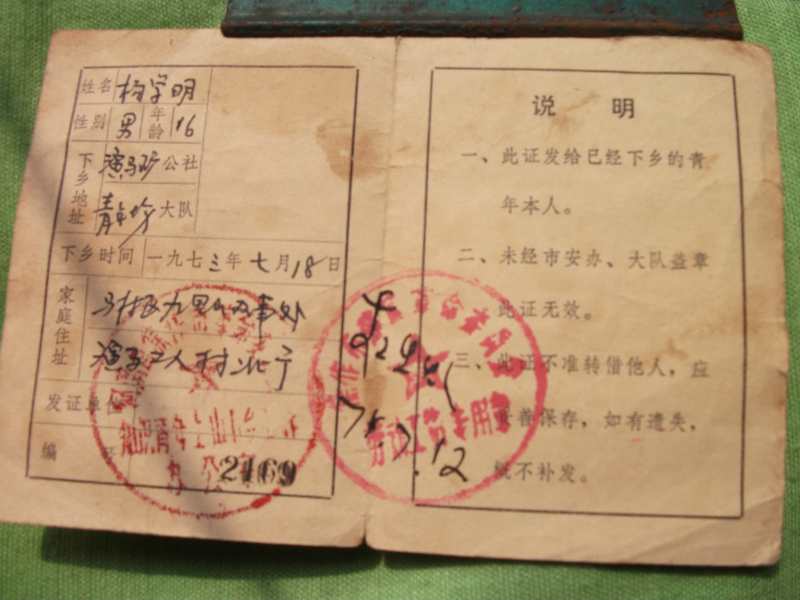 姓名 杨学明
性别 男 年龄 16
下乡地址 演马矿 公社
青年 大队
下乡时间 一九七三年七月18日
家庭住址 九里山办事处
演马工人村
发证单位
编 号 2169
说 明
一、此证发给已经下乡的青
年本人。
二、未经市安办、大队盖章
此证无效。
三、此证不准转借他人，应
妥善保存，如有遗失，
概不补发。
劳动工资专用章